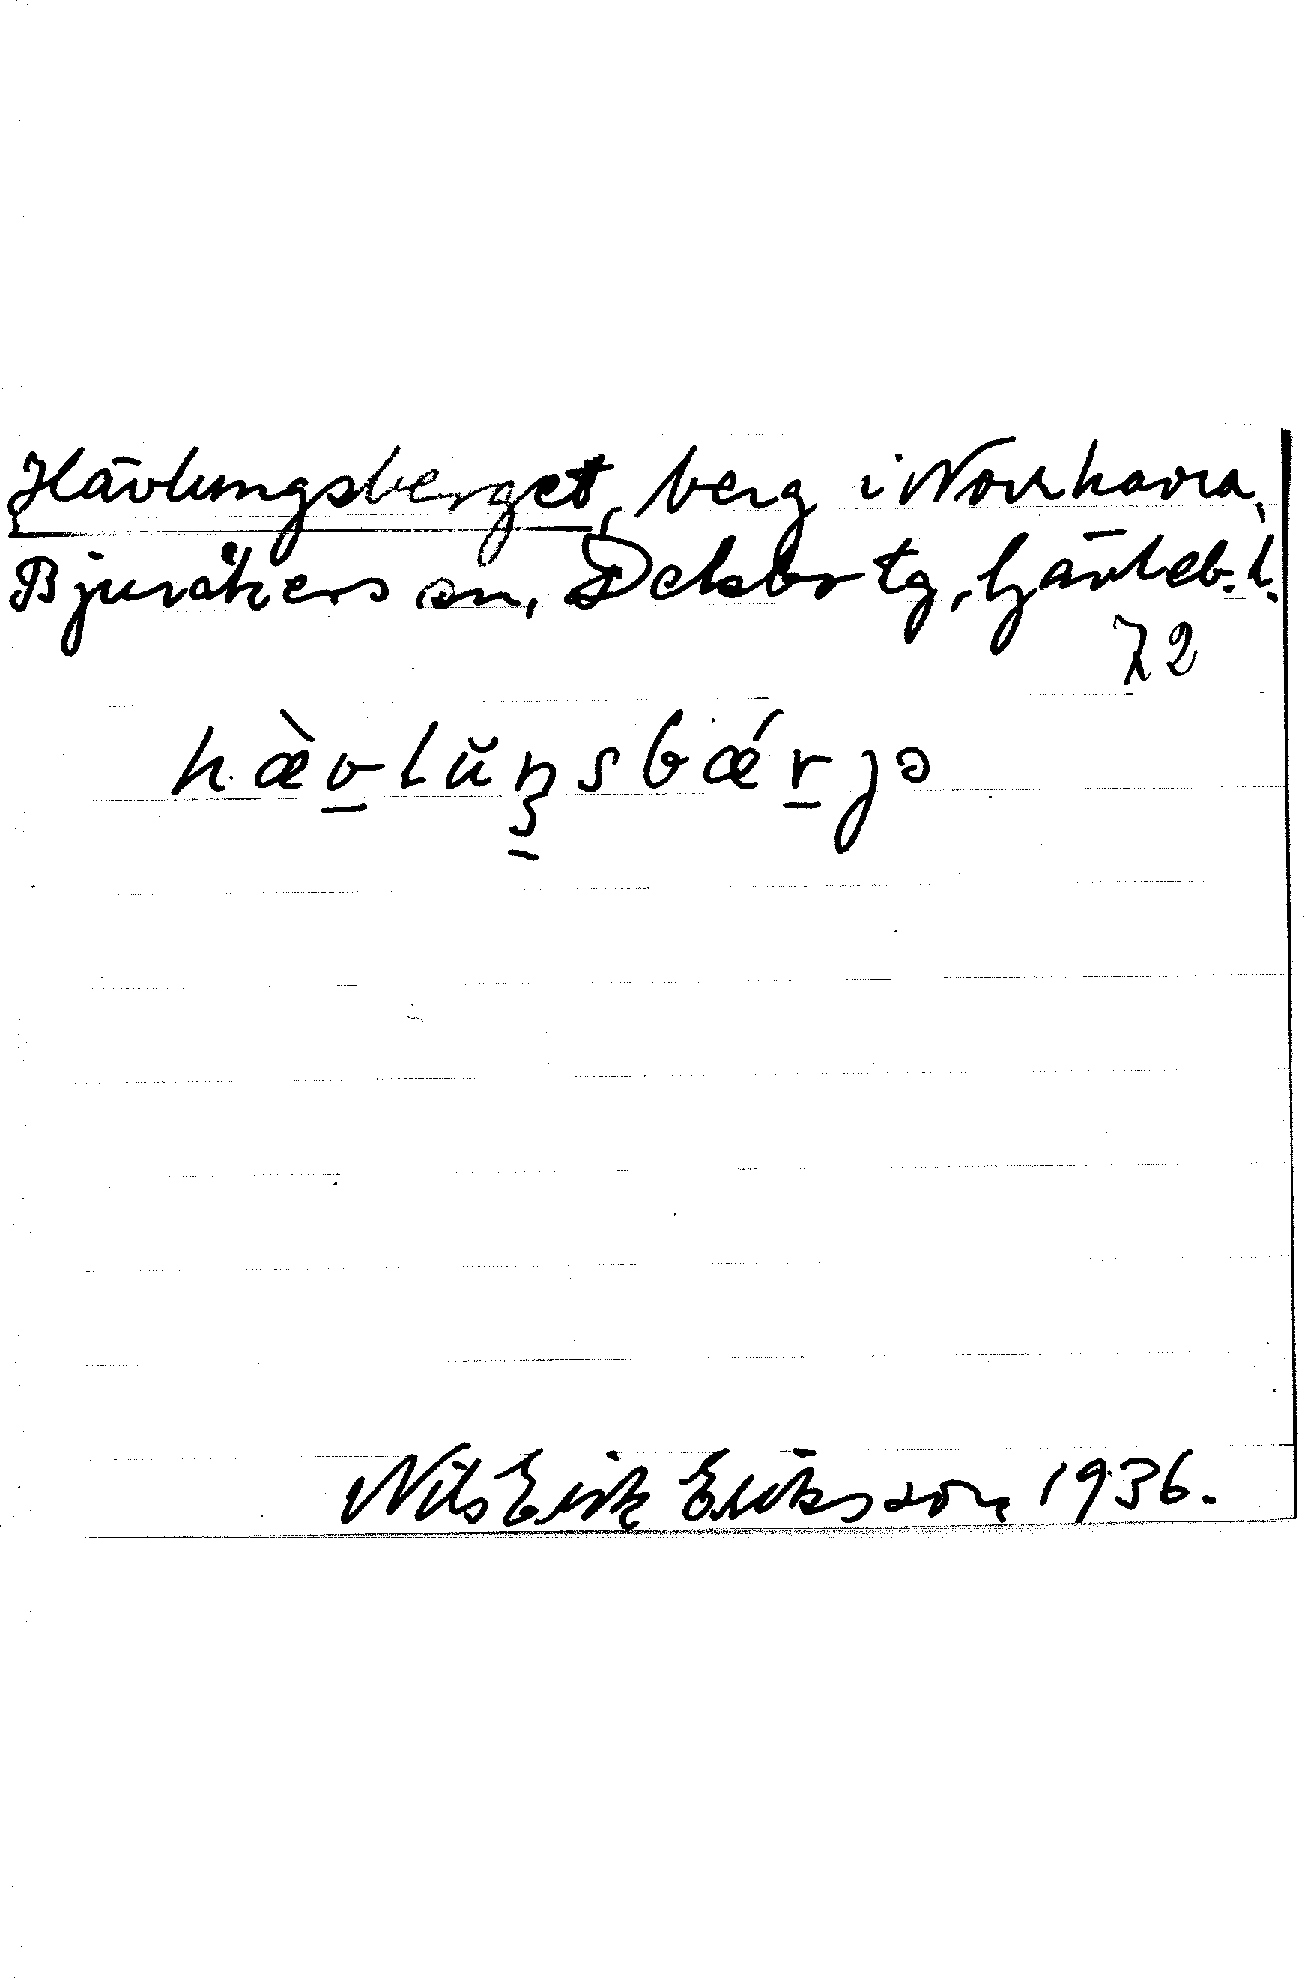 Hävlungsberget, berg i Norrhavra,
Bjuråkers sn, Delsbo tg, Gävleb. l.
72
hæ̀v̲lŭŋ̲sbǽr̲jə
Nils Erik Eriksson 1936.